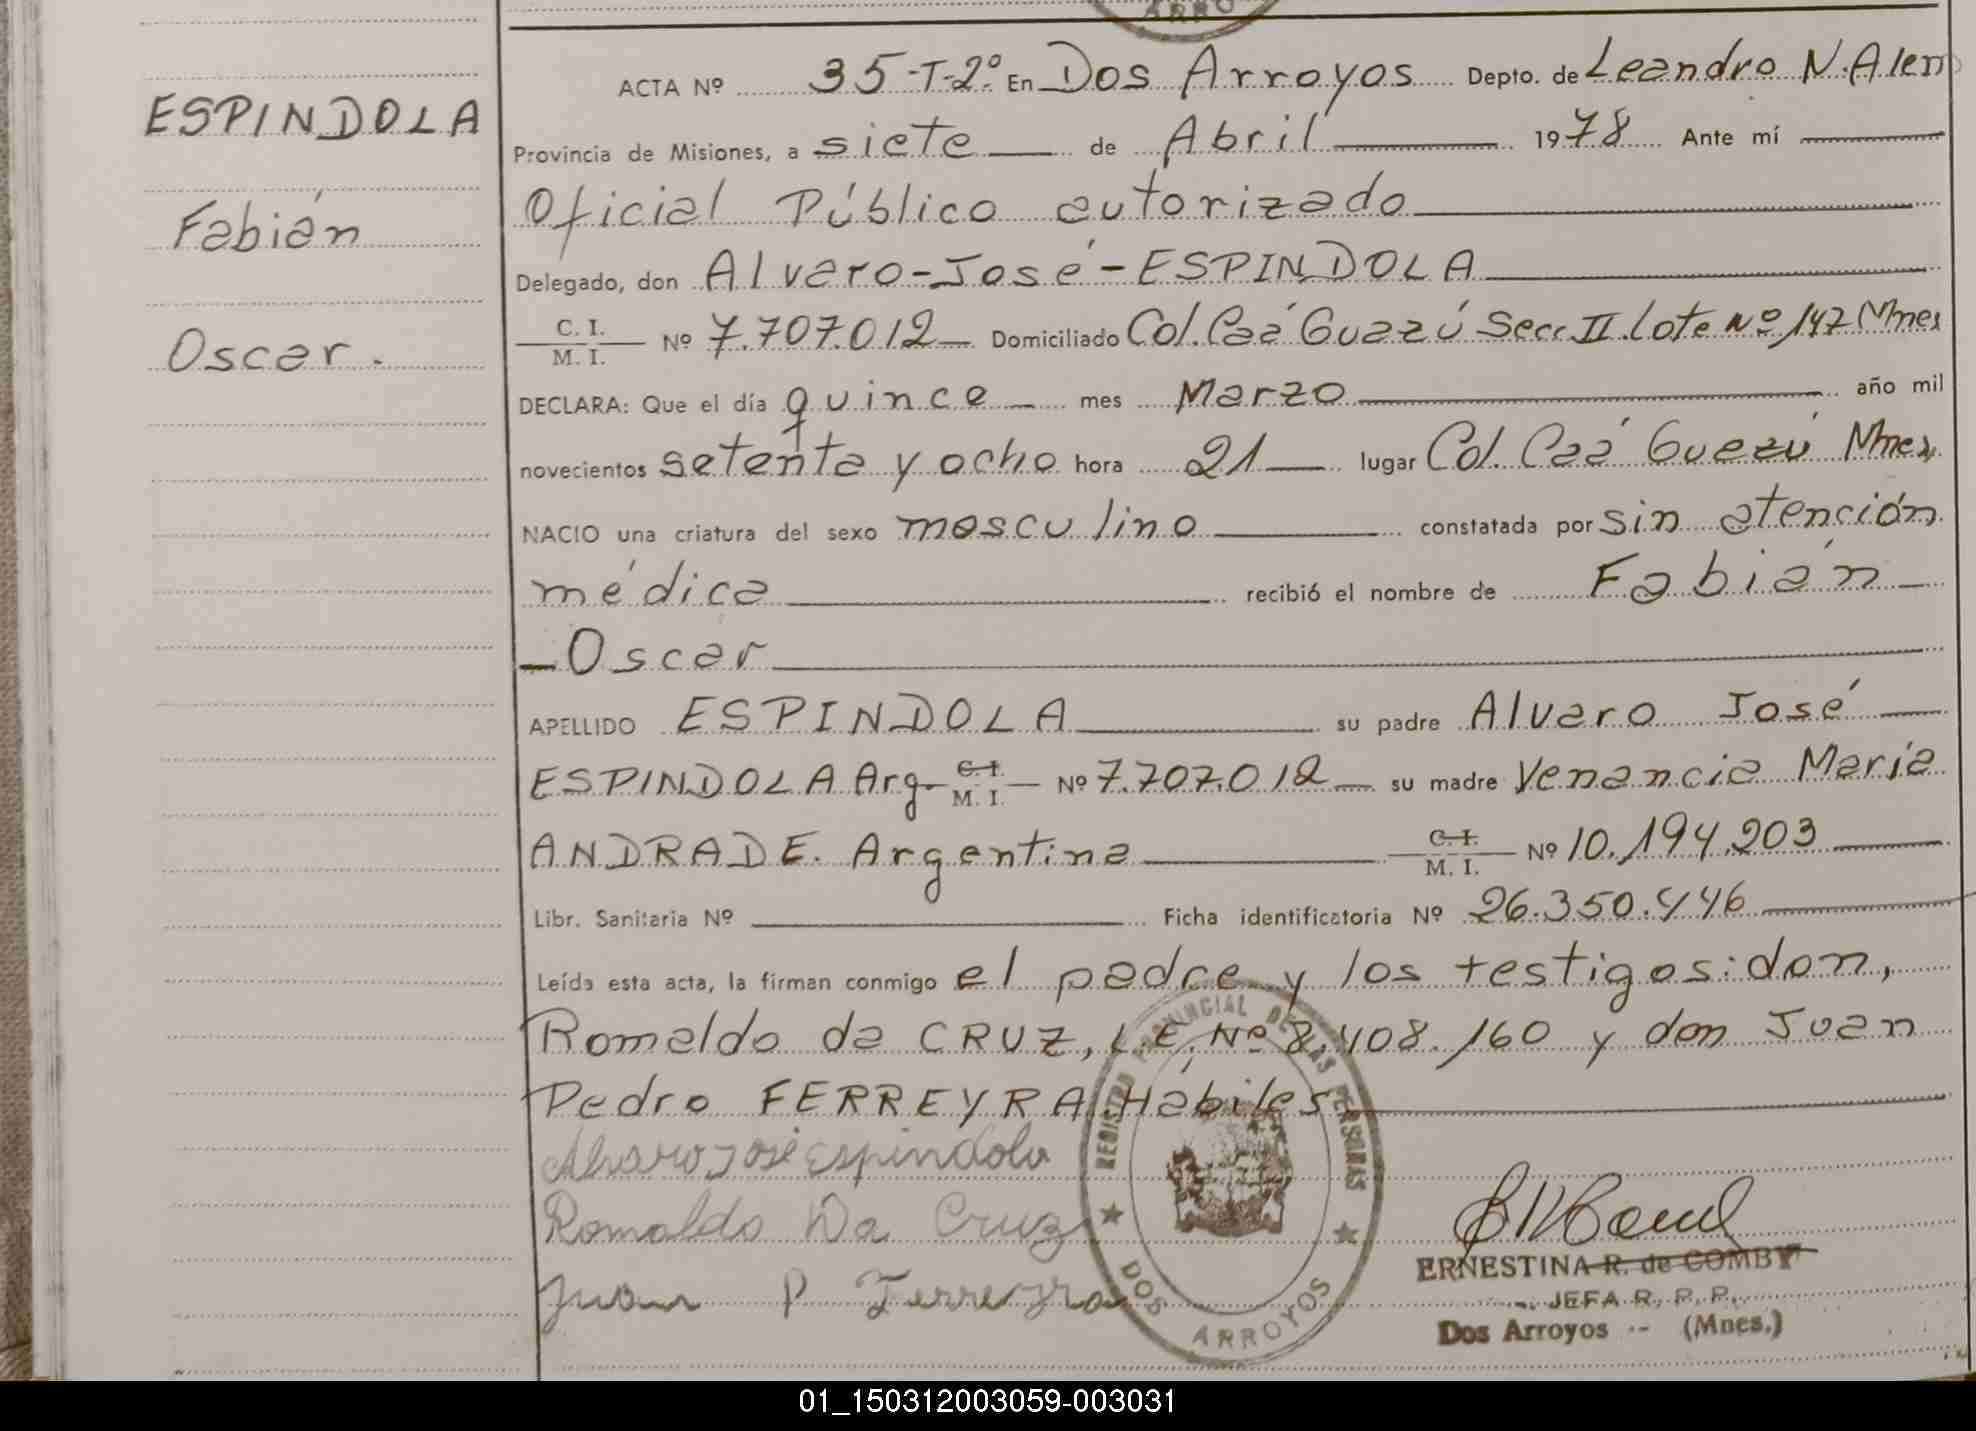 ARRO
ACTA Nº 35-T-2º En Dos Arroyos Depto. de Leandro N. Alem
ESPINDOLA
Provincia de Misiones, a siete de Abril 1978 Ante mí
Fabián
Oficial Público autorizado
Delegado, don Alvaro-José-ESPINDOLA
Oscar.
C. I.
M. I. Nº 7.707.012 Domiciliado Col. Caá Guazú Secc. II. Lote Nº 147 Mnes
DECLARA: Que el día quince mes Marzo año mil
novecientos setenta y ocho hora 21 lugar Col. Caá Guazú Mnes.
NACIO una criatura del sexo masculino constatada por sin atención
médica recibió el nombre de Fabián
-Oscar
APELLIDO ESPINDOLA su padre Alvaro José
ESPINDOLA Arg. C. I. M. I. Nº 7.707.012 su madre Venancia María
ANDRADE. Argentina C. I. M. I. Nº 10.194.203
Libr. Sanitaria Nº Ficha identificatoria Nº 26.350.446
Leída esta acta, la firman conmigo el padre y los testigos: don,
Romaldo da CRUZ, L.E. Nº 8.408.160 y don Juan
Pedro FERREYRA. Hábiles
Alvaro José Espindola
Romaldo Da Cruz
Juan P Ferreyra
REGISTRO PROVINCIAL DE LAS PERSONAS
DOS ARROYOS
ERNESTINA R. de COMBY
JEFA R. P. P.
Dos Arroyos -- (Mnes.)
01_150312003059-003031